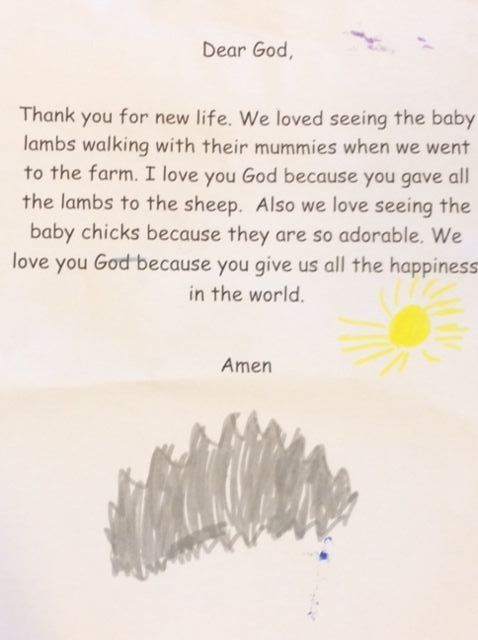 Dear God,
Thank you for new life. We loved seeing the baby
lambs walking with their mummies when we went
to the farm. I love you God because you gave all
the lambs to the sheep.  Also we love seeing the
baby chicks because they are so adorable. We
love you God because you give us all the happiness
in the world.
Amen